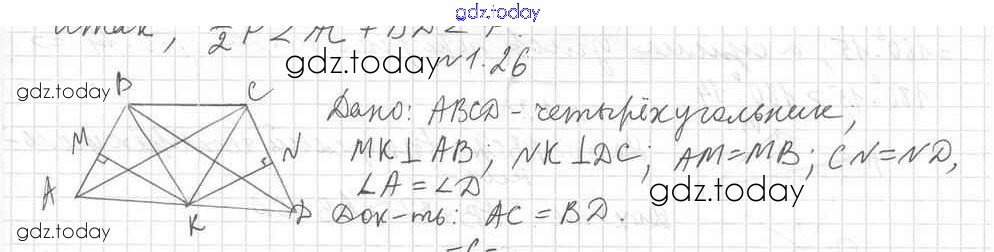 gdz.today
итак, 1/2 P < AC + BD < P.
gdz.today
№1.26
gdz.today
B C
Дано: ABCD - четырёхугольник;
M N
MK ⊥ AB; NK ⊥ DC; AM = MB; CN = ND,
A
∠A = ∠D
gdz.today
K D
Док-ть: AC = BD.
gdz.today